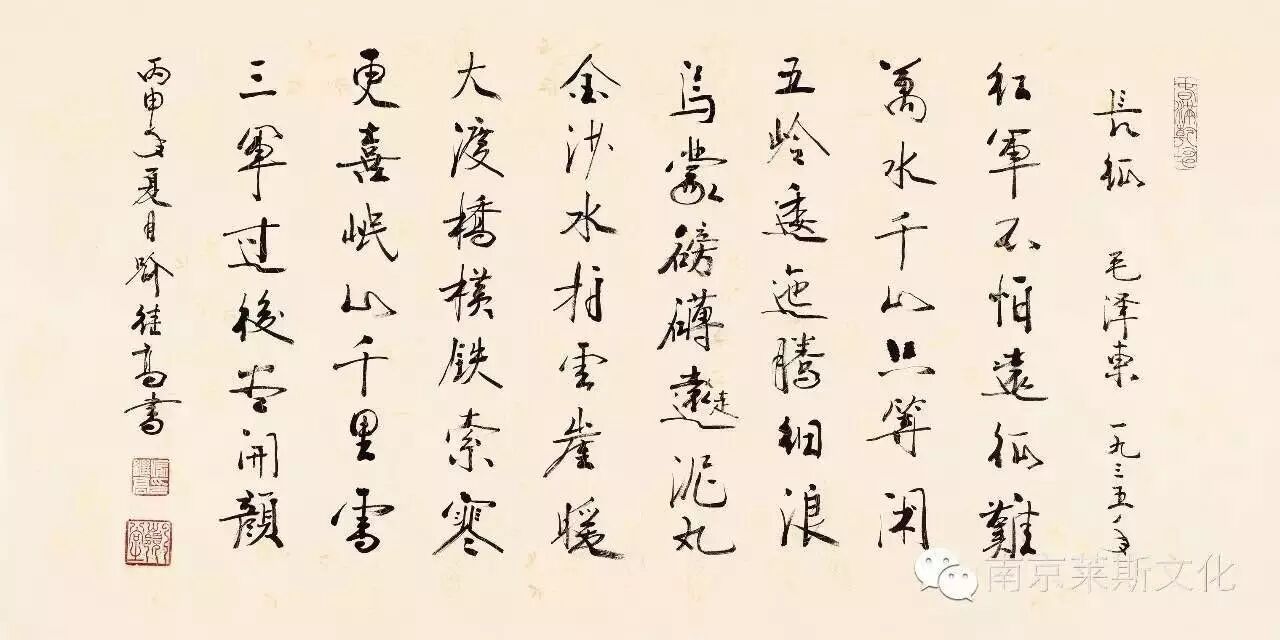 長征 毛泽東 一九三五年
紅軍不怕遠征難
萬水千山只等閑
五岭逶迤腾細浪
烏蒙磅礴遠走泥丸
金沙水拍雲崖暖
大渡橋横铁索寒
更喜岷山千里雪
三軍过後尽開顔
丙申年夏月喻继高書
南京莱斯文化